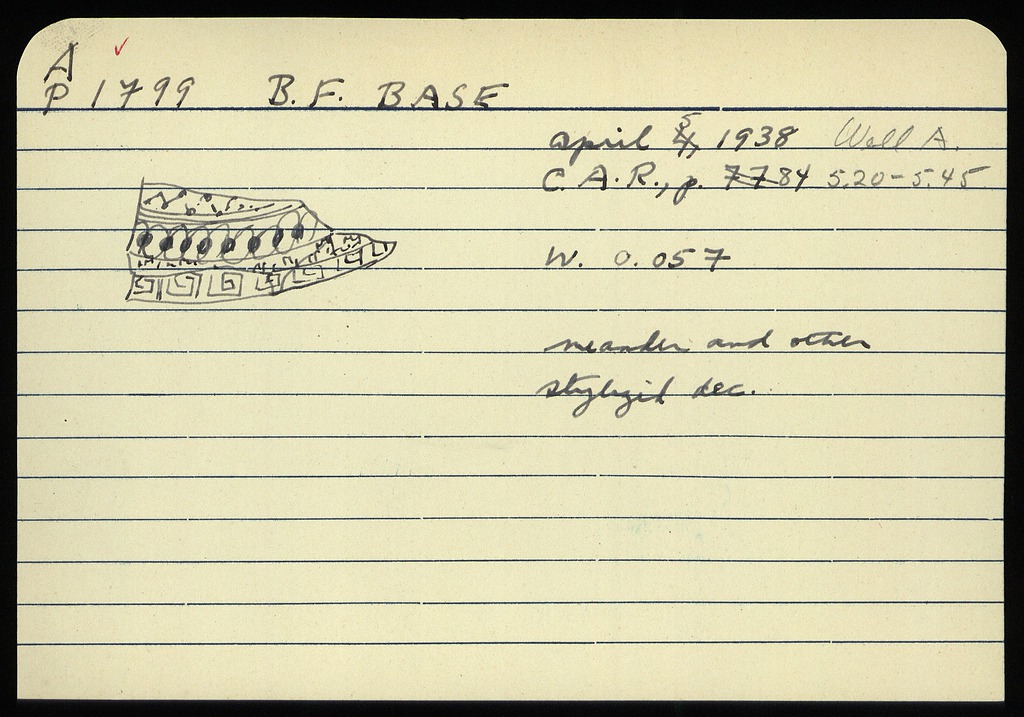 A
P 1799 B.F. BASE
April 5, 1938 Well A.
C.A.R., p. 77 84 5.20-5.45
W. 0.057
meander and other
stylyzid dec.